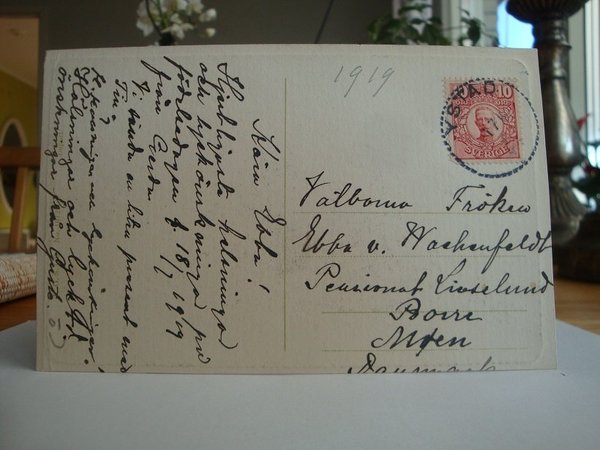 1919
YSTAD
10
SVERIGE
Välborna Fröken
Ebba v. Wachenfeldt
Pensionat Liselund
Borre
Møen
Danmark
Kära Ebba!
Hjärtligaste hälsningar
och lyckönskningar på
födelsedagen d. 18/7 1919
från Gerda
Vi sända en liten present med
Tina
Lyckönskningar
Hälsningar och lyck
önskningar från Gusta.